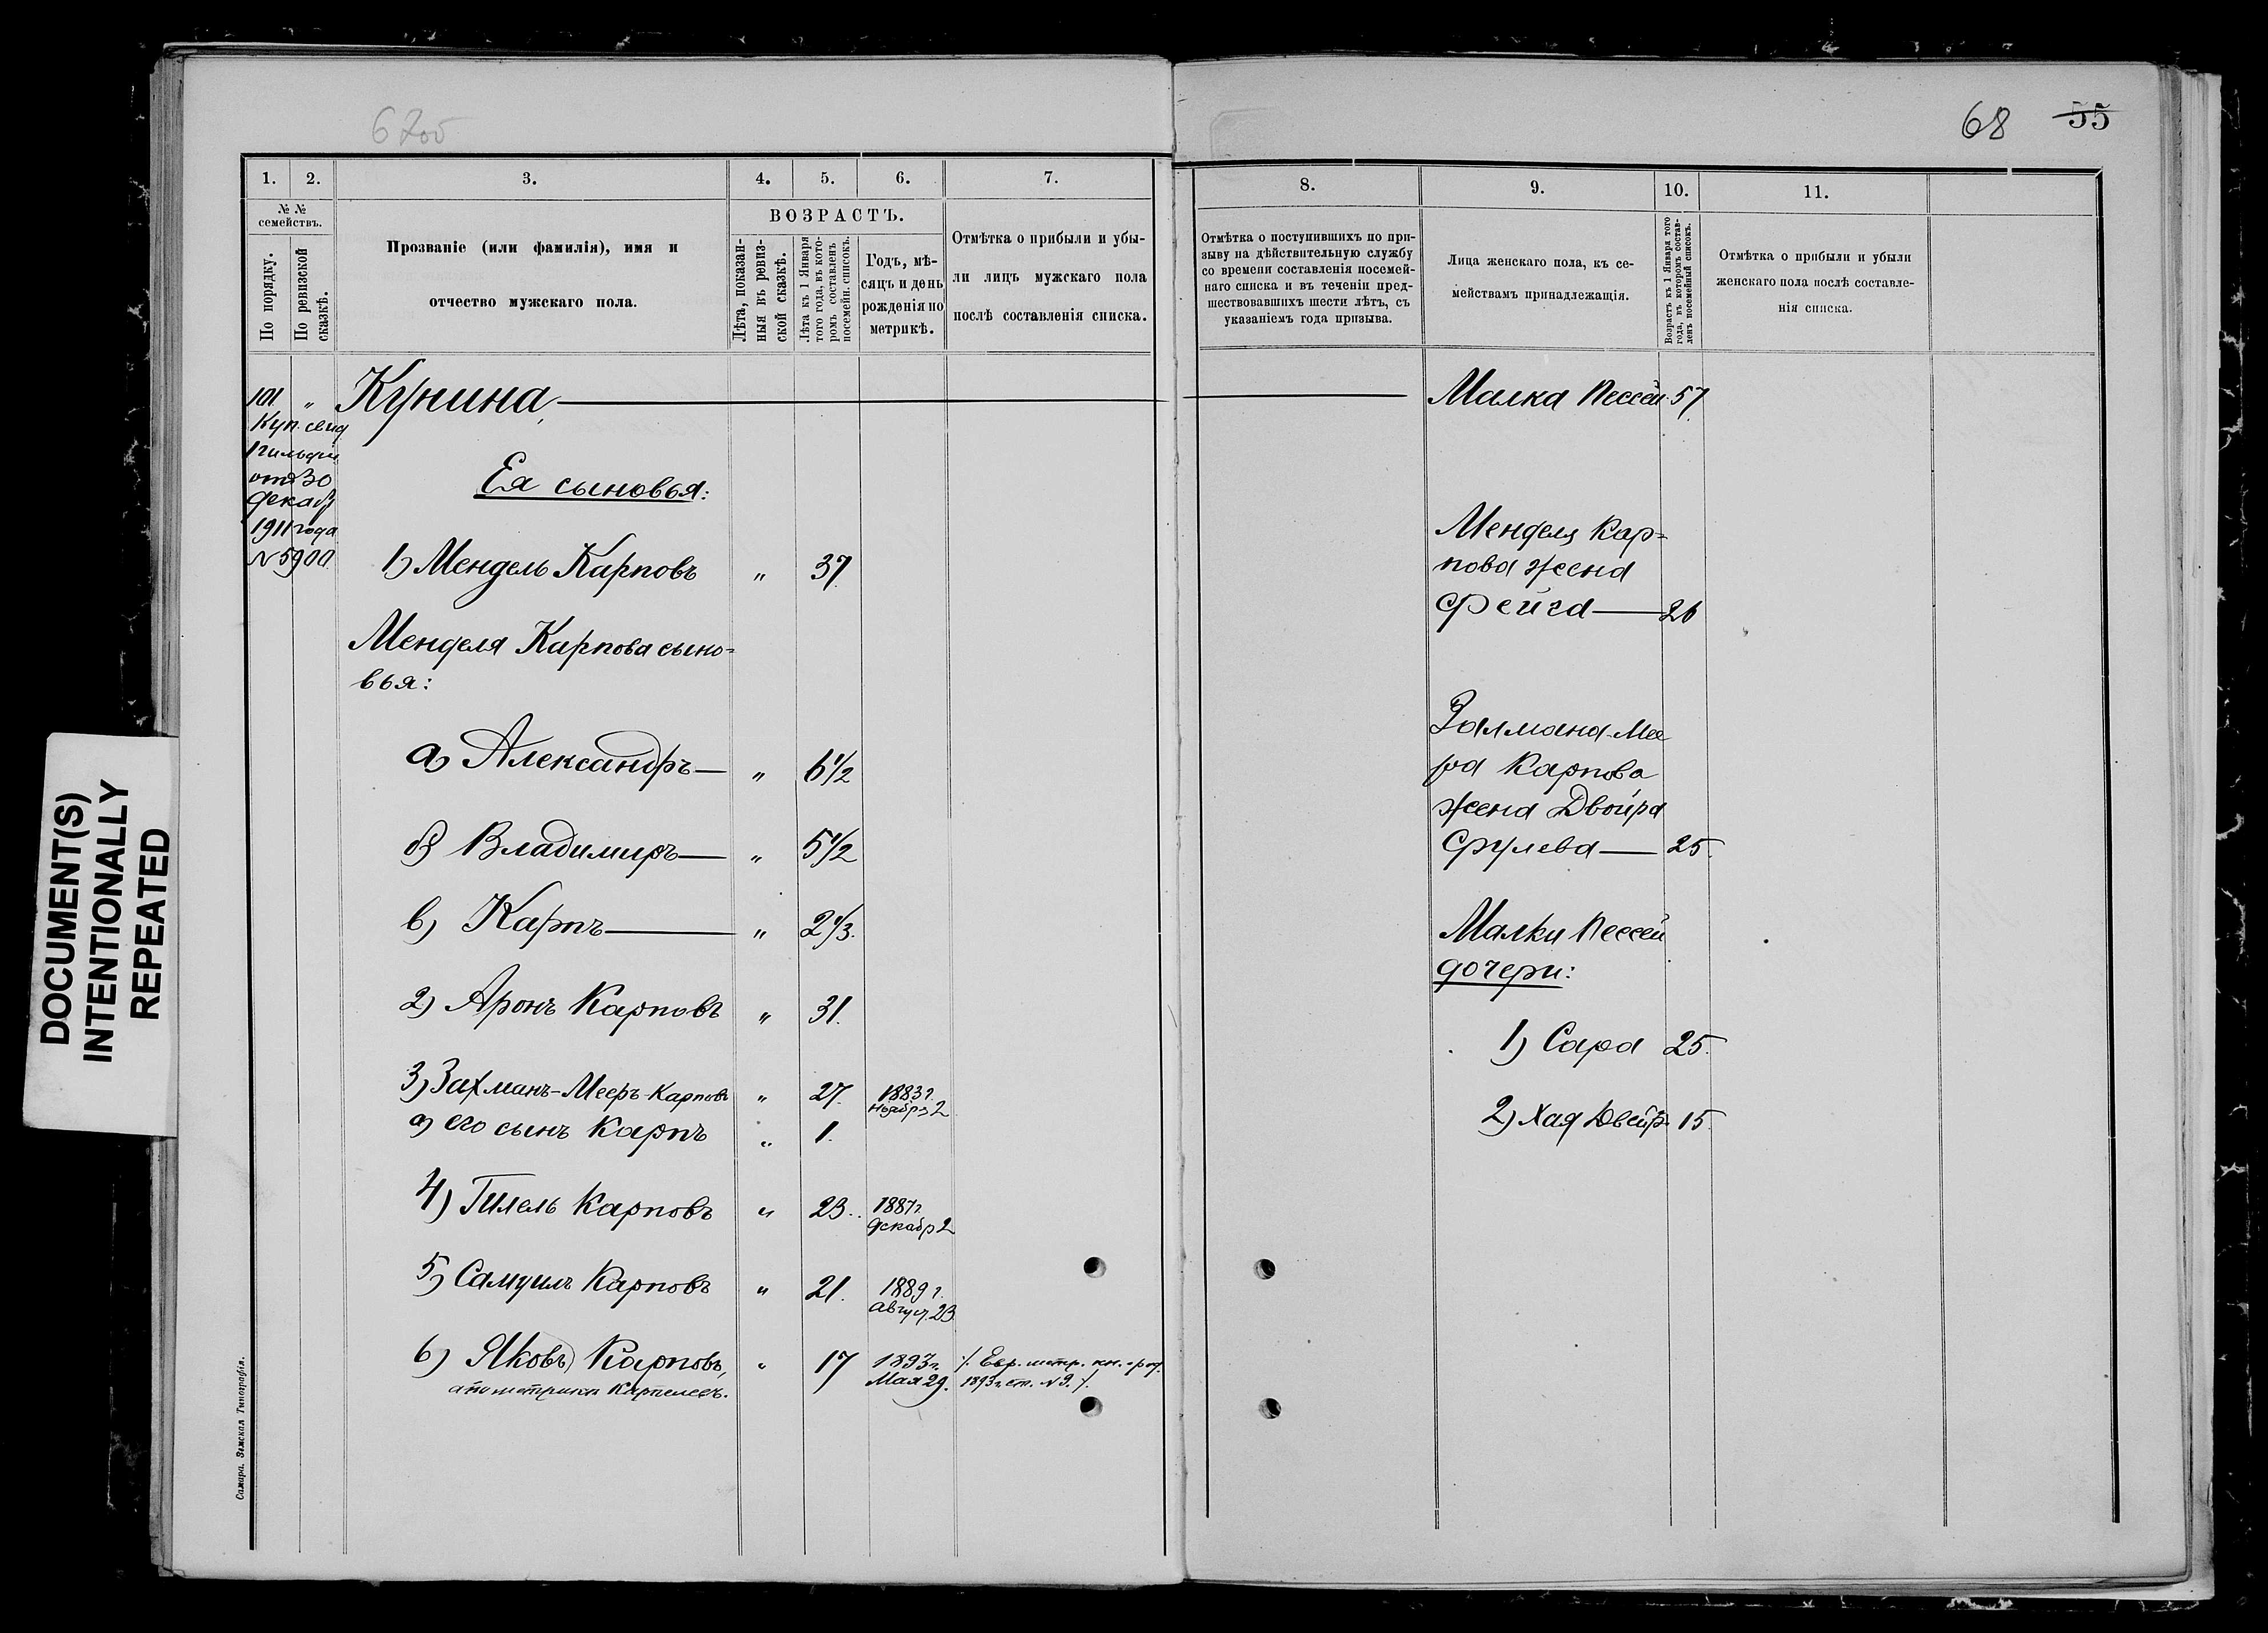 67об
68 55
1. 2. 3. 4. 5. 6. 7.
№ №
семействъ.
По порядку.
По ревизской
сказкѣ.
Прозваніе (или фамилія), имя и
отчество мужскаго пола.
ВОЗРАСТЪ.
Лѣта, показан-
ныя въ ревиз-
ской сказкѣ.
Лѣта къ 1 Января
того года, въ кото-
ромъ составленъ
посемейн. списокъ.
Годъ, мѣ-
сяцъ и день
рожденія по
метрикѣ.
Отмѣтка о прибыли и убы-
ли лицъ мужскаго пола
послѣ составленія списка.
101 " Кунина,
Куп. свид
1 гильдіи
отъ 30
декаб
1911 года
№ 5900.
Ея сыновья:
1) Мендель Карповъ " 37.
Менделя Карпова сыно=
вья:
а) Александръ " 6 1/2
б) Владимиръ " 5 1/2
в) Карпъ " 2 1/3.
2) Аронъ Карповъ " 31.
3) Залманъ-Мееръ-Карповъ " 27. 1883 г.
ноября 2
а) его сынъ Карпъ " 1.
4) Гилель Карповъ " 23. 1887 г.
декабр 2
5) Самуилъ Карповъ " 21. 1889 г.
август. 23
6) Яковъ) Карповъ, " 17 1893 г. /. Евр. метр. кн. о род.
а по метрикѣ Карпелевъ. Мая 29. 1893 г. ст. № 9. /.
Самара. Земская Типографія.
8. 9. 10. 11.
Отмѣтка о поступившихъ по при-
зыву на дѣйствительную службу
со времени составленія посемей-
наго списка и въ теченіи пред-
шествовавшихъ шести лѣтъ, съ
указаніемъ года призыва.
Лица женскаго пола, къ се-
мействамъ принадлежащія.
Возрастъ къ 1 Января того
года, въ которомъ состав-
ленъ посемейный списокъ.
Отмѣтка о прибыли и убыли
женскаго пола послѣ составле-
нія списка.
Малка Пессей 57.
Менделя Кар=
пова жена
Фейга 26
Залмана-Мее
ра Карпова
жена Двойра
Фулева 25.
Малки Пессей
дочери:
1) Сара 25.
2) Хая Двейр. 15.
DOCUMENT(S)
INTENTIONALLY
REPEATED